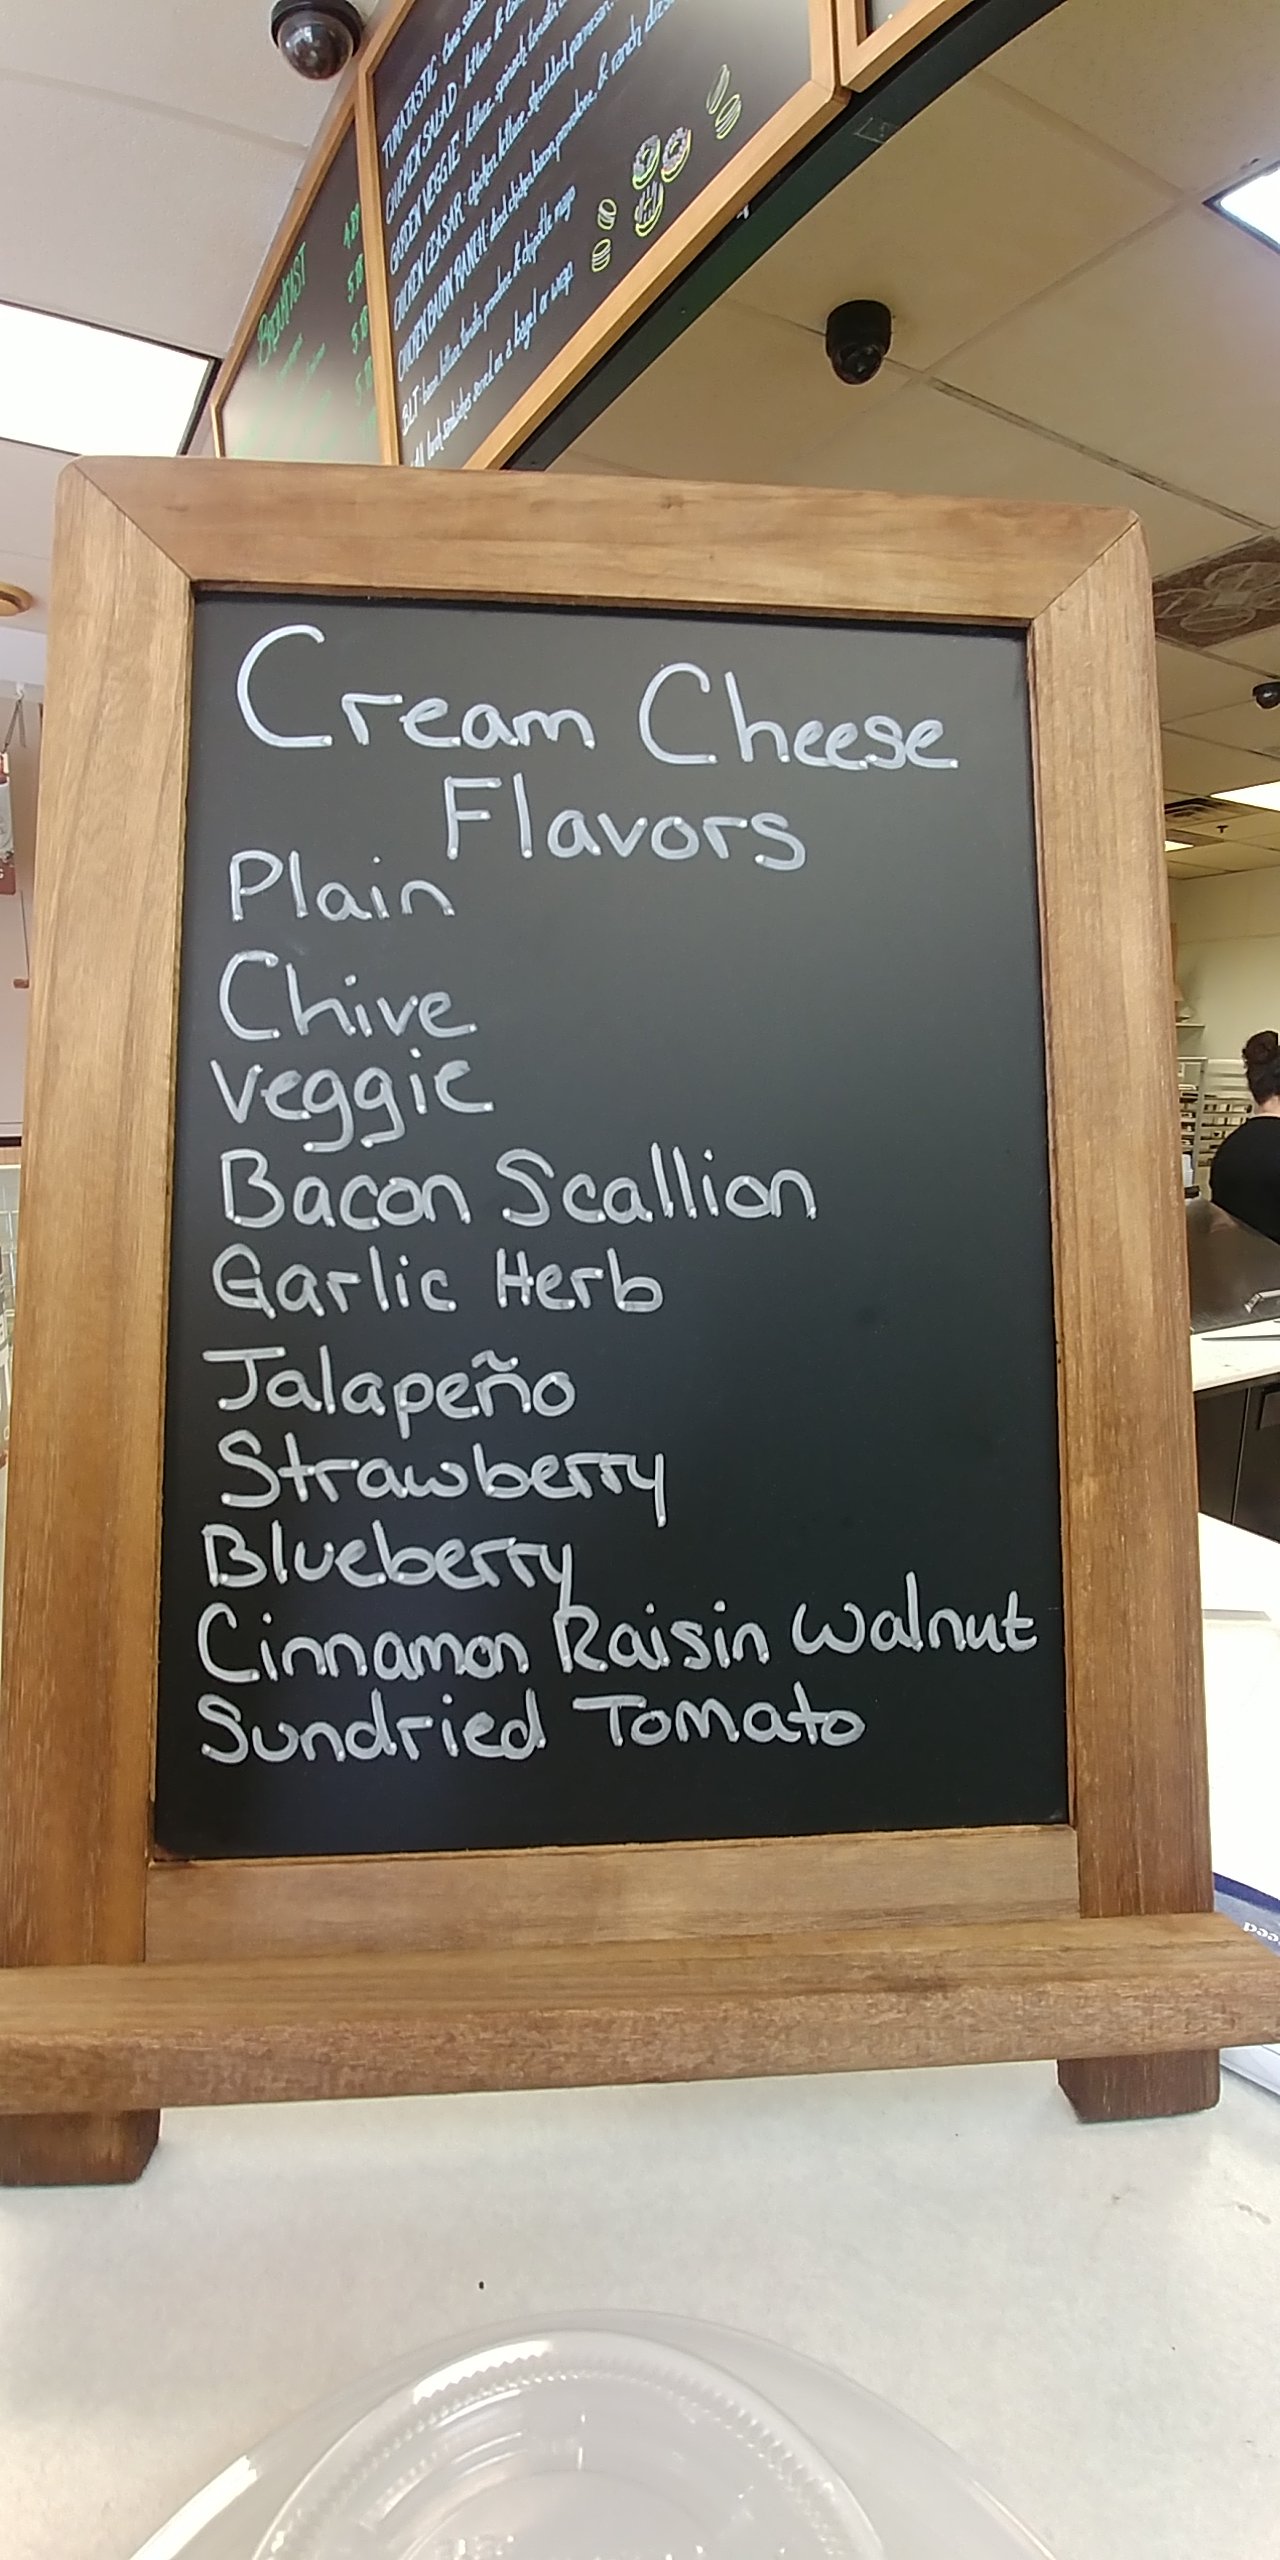 TUNATASTIC: tuna salad
CHICKEN SALAD: lettuce &
GARDEN VEGGIE: lettuce, spinach, tomato
CHICKEN CEASAR: chicken, lettuce, shredded parmesan,
CHICKEN BACON RANCH: diced chicken, bacon, provolone, & ranch
BLT: bacon, lettuce, tomato, provolone & chipotle mayo
All lunch sandwiches served on a bagel or wrap
BREAKFAST
Cream Cheese
Flavors
Plain
Chive
Veggie
Bacon Scallion
Garlic Herb
Jalapeño
Strawberry
Blueberry
Cinnamon Raisin Walnut
Sundried Tomato